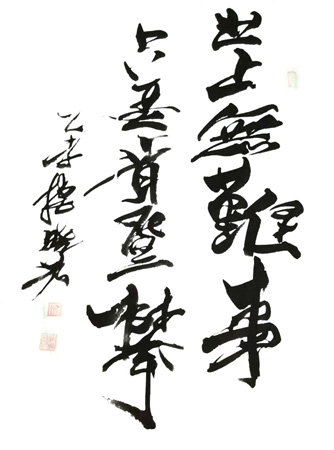 世上無難事
只要肯登攀
乙未